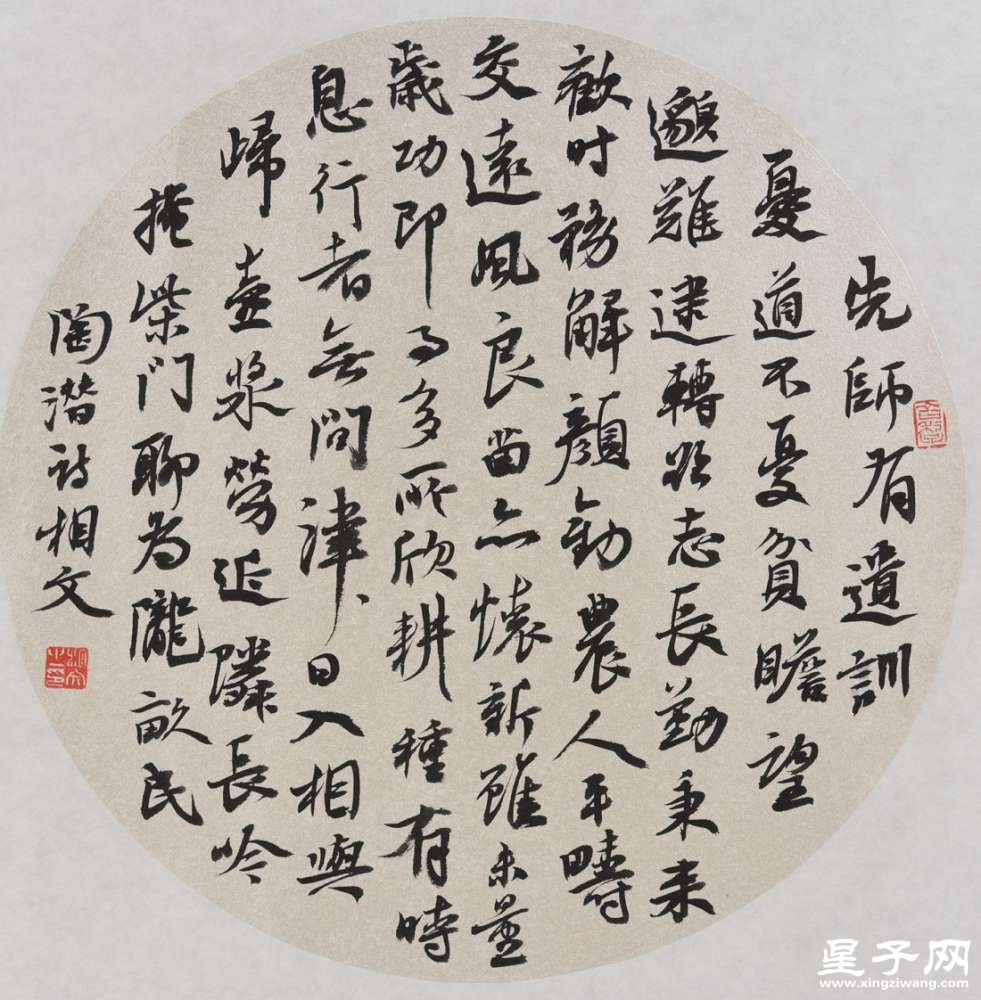 先師有遺訓
憂道不憂貧瞻望
邈難逮轉欲志長勤秉耒
歡时務解顏勸農人平疇
交遠風良苗亦懷新雖未量
歲功即事多所欣耕種有時
息行者無問津日入相與
歸壺漿勞近隣長吟
掩柴門聊為隴畝民
陶潛詩相文
星子网
www.xingziwang.com